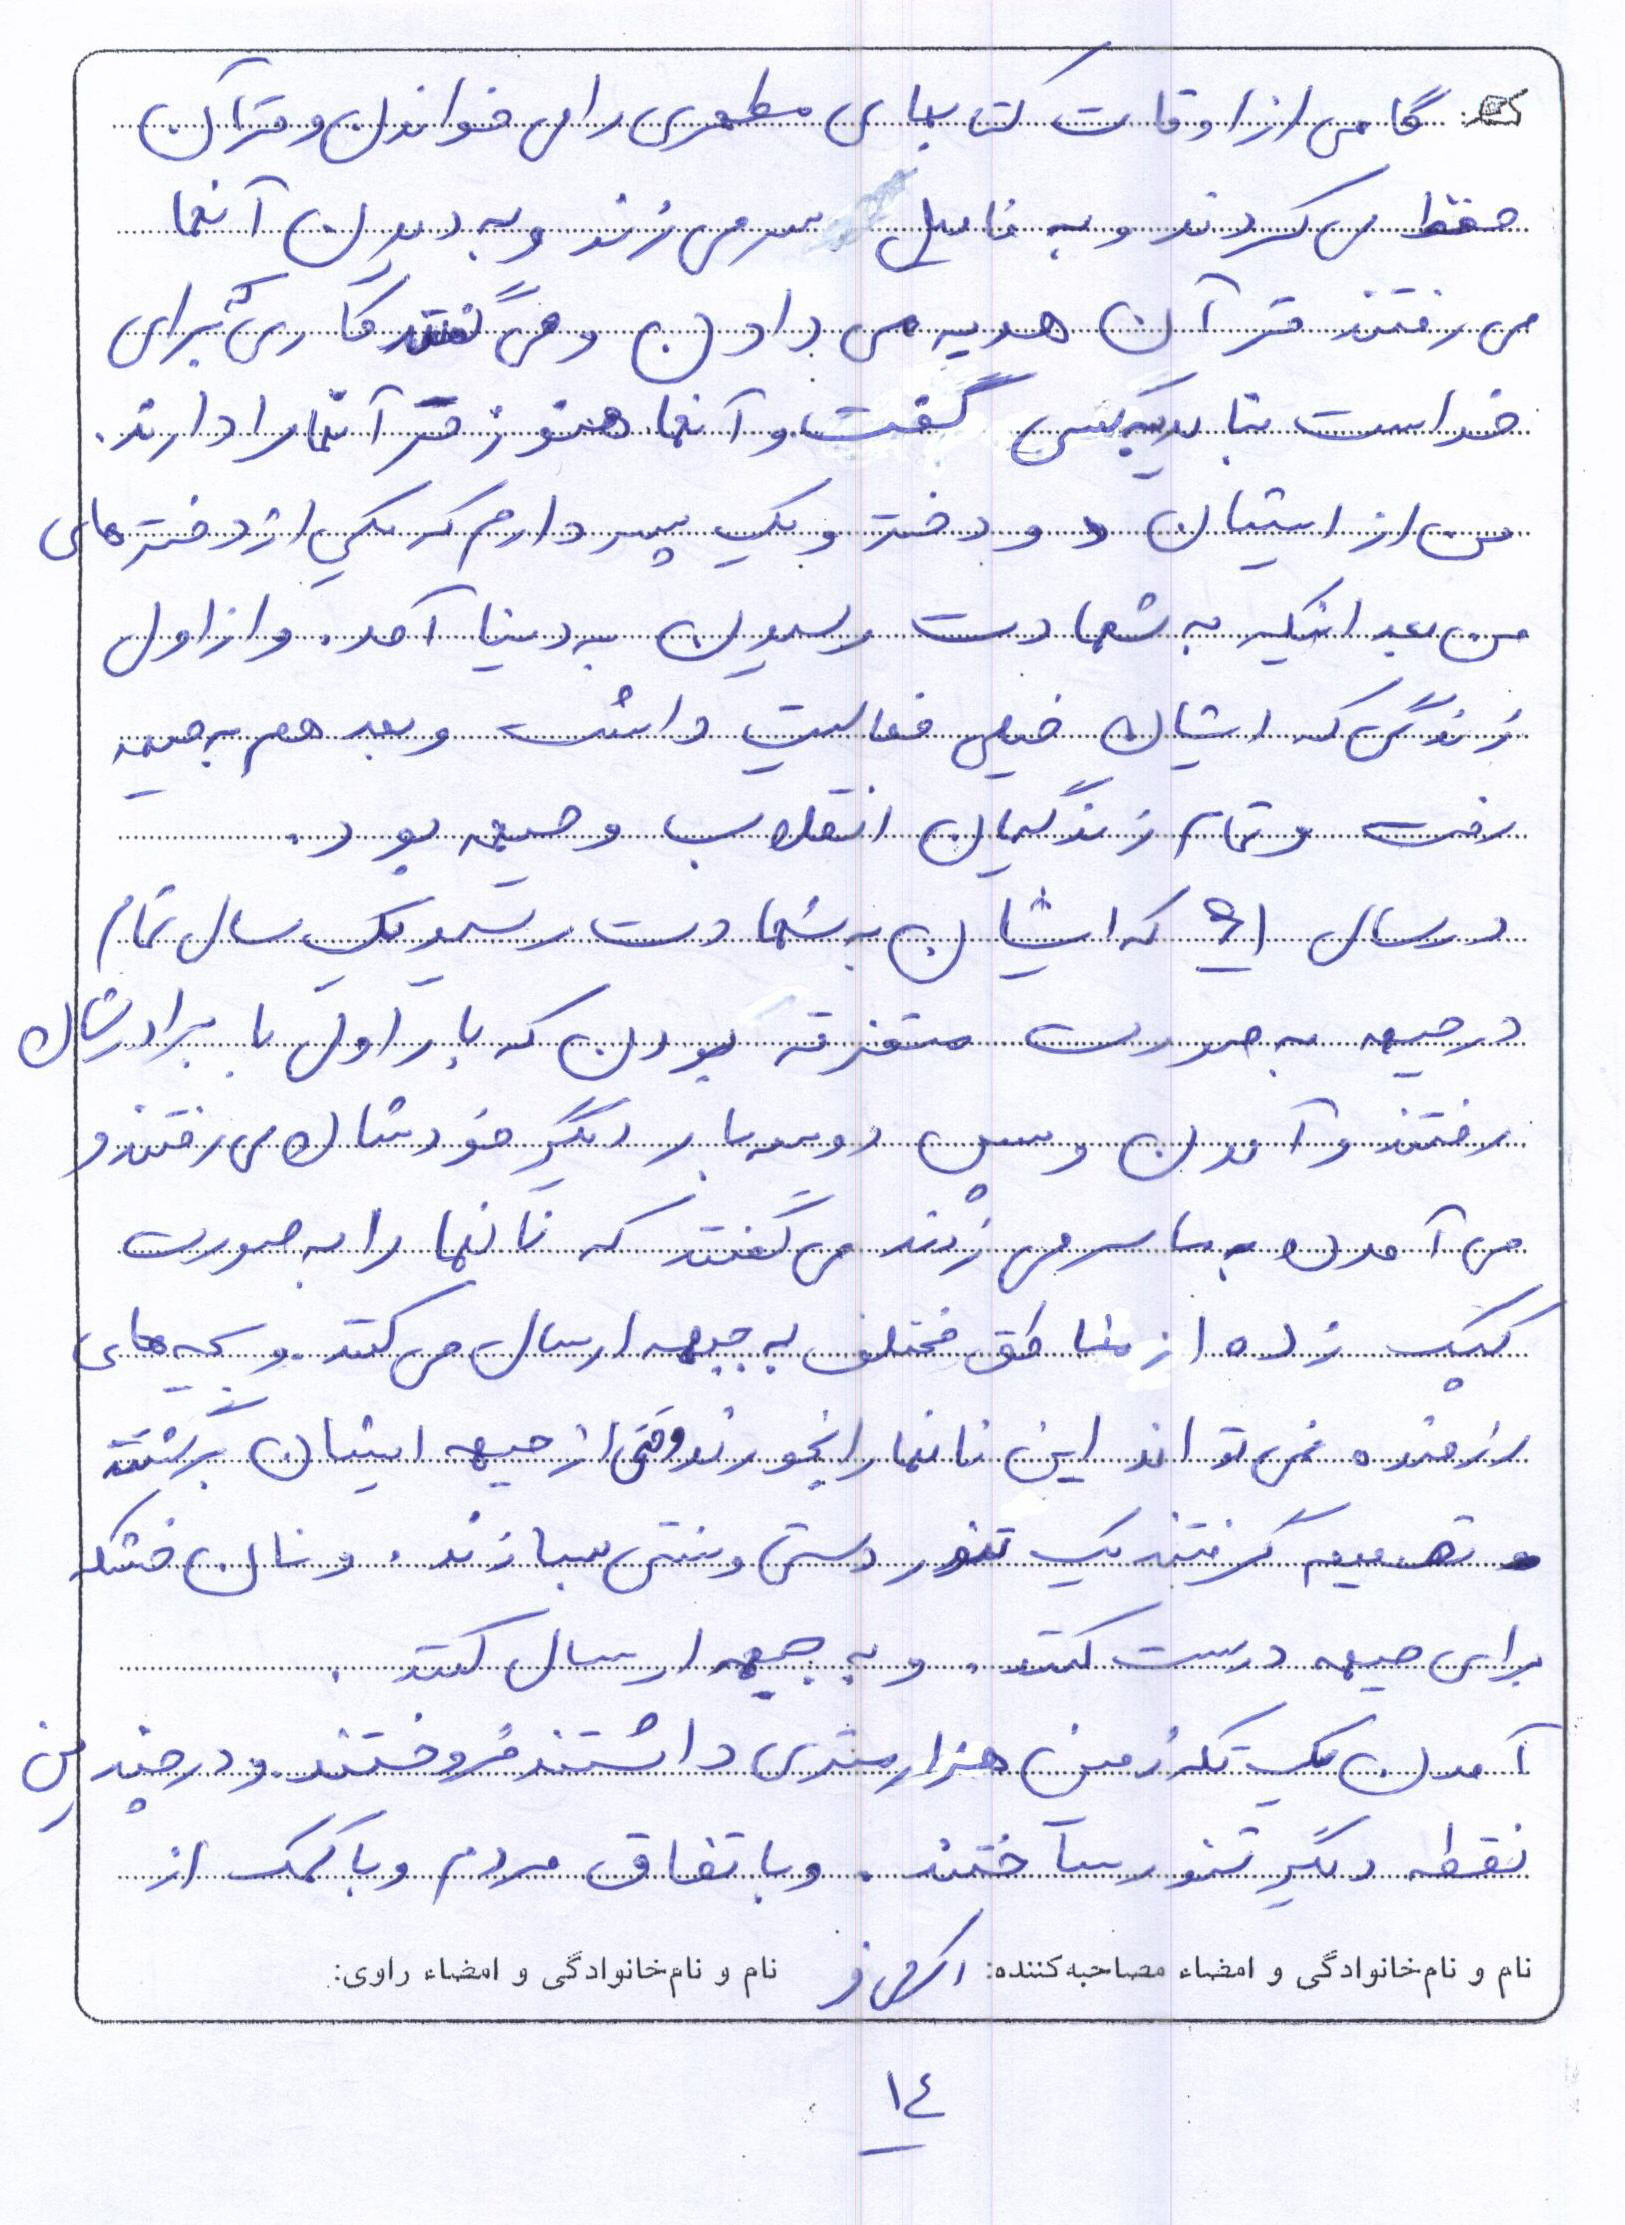 گاهی از اوقات کتابهای مطهری را می خواندن و قرآن
حفظ می کردند و به فامیل سر می زند و به دیدن آنها
می رفتند قرآن هدیه می دادن و می گفتند کاری که برای
خداست نباید به کسی گفت و آنها هنوز قرآنها را دارند.
من از ایشان دو دختر و یک پسر دارم که یکی از دخترهای
من بعد اینکه به شهادت رسیدن به دنیا آمد. و از اول
زندگی که ایشان خیلی فعالیت داشت و بعد هم به جبهه
رفت و تمام زندگیمان انقلاب و جبهه بود.
در سال ۶۱ که ایشان به شهادت رسید یک سال تمام
در جبهه به صورت متفرقه بودن که بار اول با برادرشان
رفتند و آمدن و سپس دو سه بار دیگر خودشان می رفتند و
می آمدن به ما سر می زدند می گفتند که نانها را به صورت
کپک زده از مناطق مختلف به جبهه ارسال می کنند و بچه های
رزمنده نمی تواند این نانها را بخورند وقتی از جبهه ایشان برگشتند
تصمیم گرفتند یک تنور دستی و سنتی بسازند. و نان خشکه
برای جبهه درست کنند. و به جبهه ارسال کنند.
آمدن یک تکه زمین هزار متری داشتند فروختند و در چندین
نقطه دیگر تنور ساختند. و با تفاق مردم و با کمک از
نام و نام‌خانوادگی و امضاء مصاحبه‌کننده: نام و نام‌خانوادگی و امضاء راوی:
۱٤